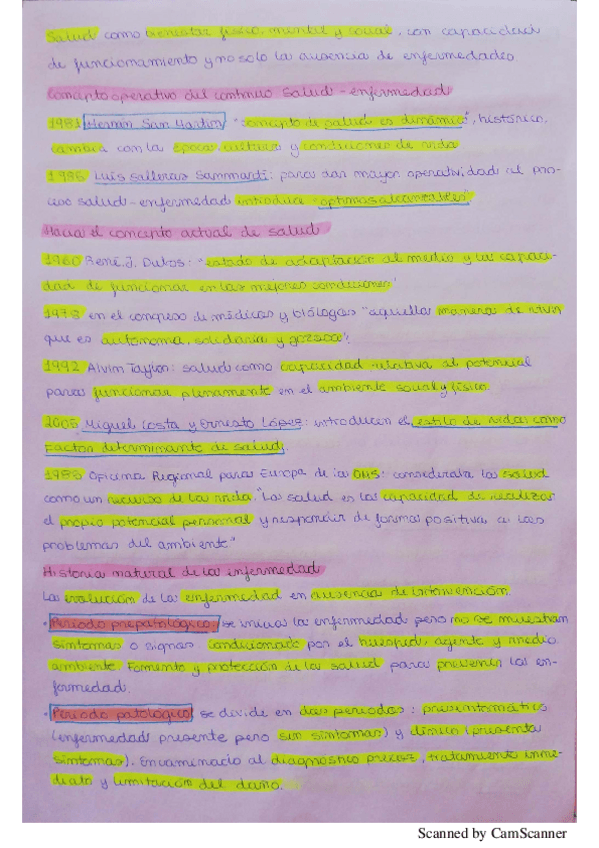 Salud como bienestar físico, mental y social, con capacidad
de funcionamiento y no solo la ausencia de enfermedades
Concepto operativo del continuo Salud - enfermedad
1981 Hernán San Martín "concepto de salud es dinámico", histórico,
cambia con la época, cultura y condiciones de vida
1985 Luis Salleras Sanmartí: para dar mayor operatividad al pro-
ceso salud-enfermedad introduce "optimos alcanzables"
Hacia el concepto actual de salud
1960 René. J. Dubos: "estado de adaptación al medio y la capaci-
dad de funcionar en las mejores condiciones"
1978 en el congreso de médicos y biólogos "aquella manera de vivir
que es autónoma, solidaria y gozosa".
1992 Alvin Taylor: salud como capacidad relativa al potencial
para funcionar plenamente en el ambiente social y físico.
2005 Miguel Costa y Ernesto López: introducen el estilo de vida como
Factor determinante de salud.
1985 Oficina Regional para Europa de la OMS: consideraba la salud
como un recurso de la vida. "La salud es la capacidad de realizar
el propio potencial personal y responder de forma positiva a los
problemas del ambiente"
Historia natural de la enfermedad
La evolución de la enfermedad en ausencia de intervención.
· Periodo prepatológico: se inicia la enfermedad pero no se muestran
síntomas o signos condicionado por el huesped, agente y medio
ambiente. Fomento y protección de la salud para prevenir la en-
fermedad.
· Periodo patológico se divide en dos periodos: presintomático
(enfermedad presente pero sin síntomas) y clínico (presenta
síntomas). Encaminado al diagnostico precoz, tratamiento inme-
diato y limitación del daño.
Scanned by CamScanner